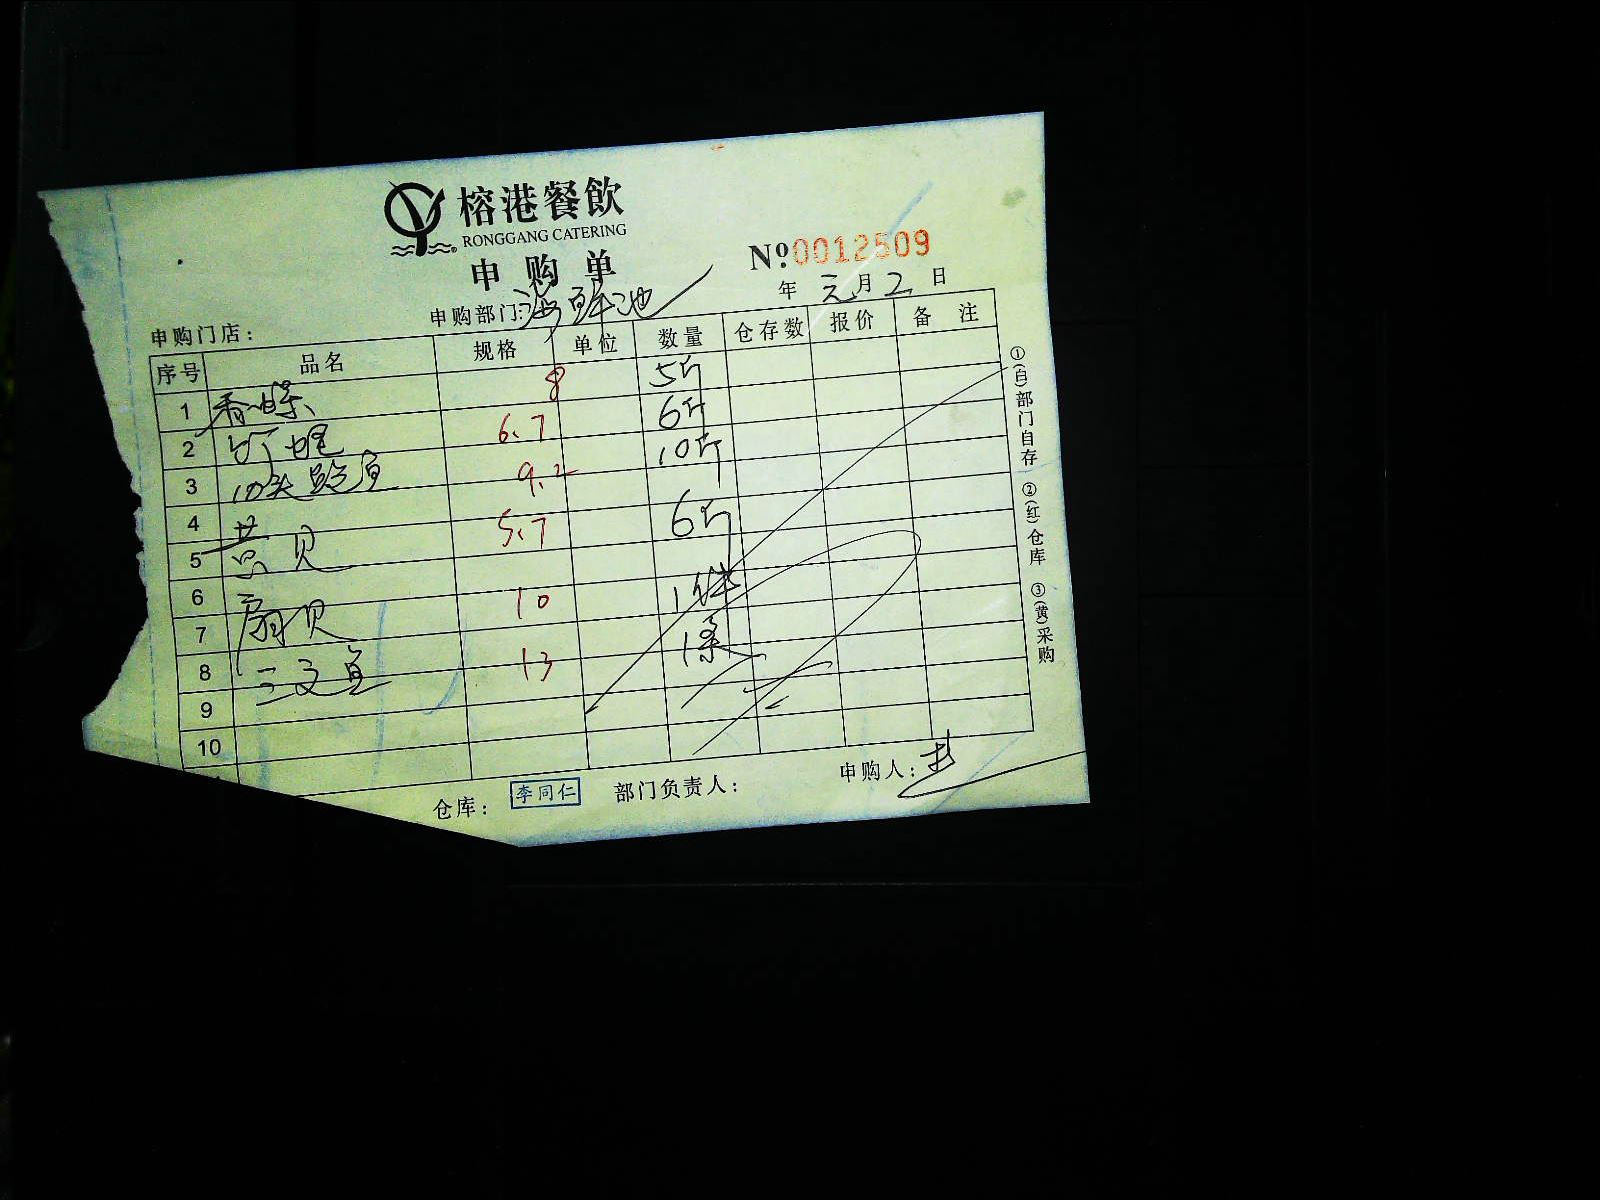 榕港餐飲
RONGGANG CATERING
申购单
№0012509
年 元月2日
申购门店： 申购部门：海鲜池
序号 品名 规格 单位 数量 仓存数 报价 备注
1 香螺 8 5斤
2 6.7 6斤
3 10头鲍鱼 9.2 10斤
4
5 贝 5.7 6斤
6
7 扇贝 10 1件
8 三文鱼 13 1条
9
10
仓库： 李同仁 部门负责人： 申购人：
①(白)部门自存 ②(红)仓库 ③(黄)采购